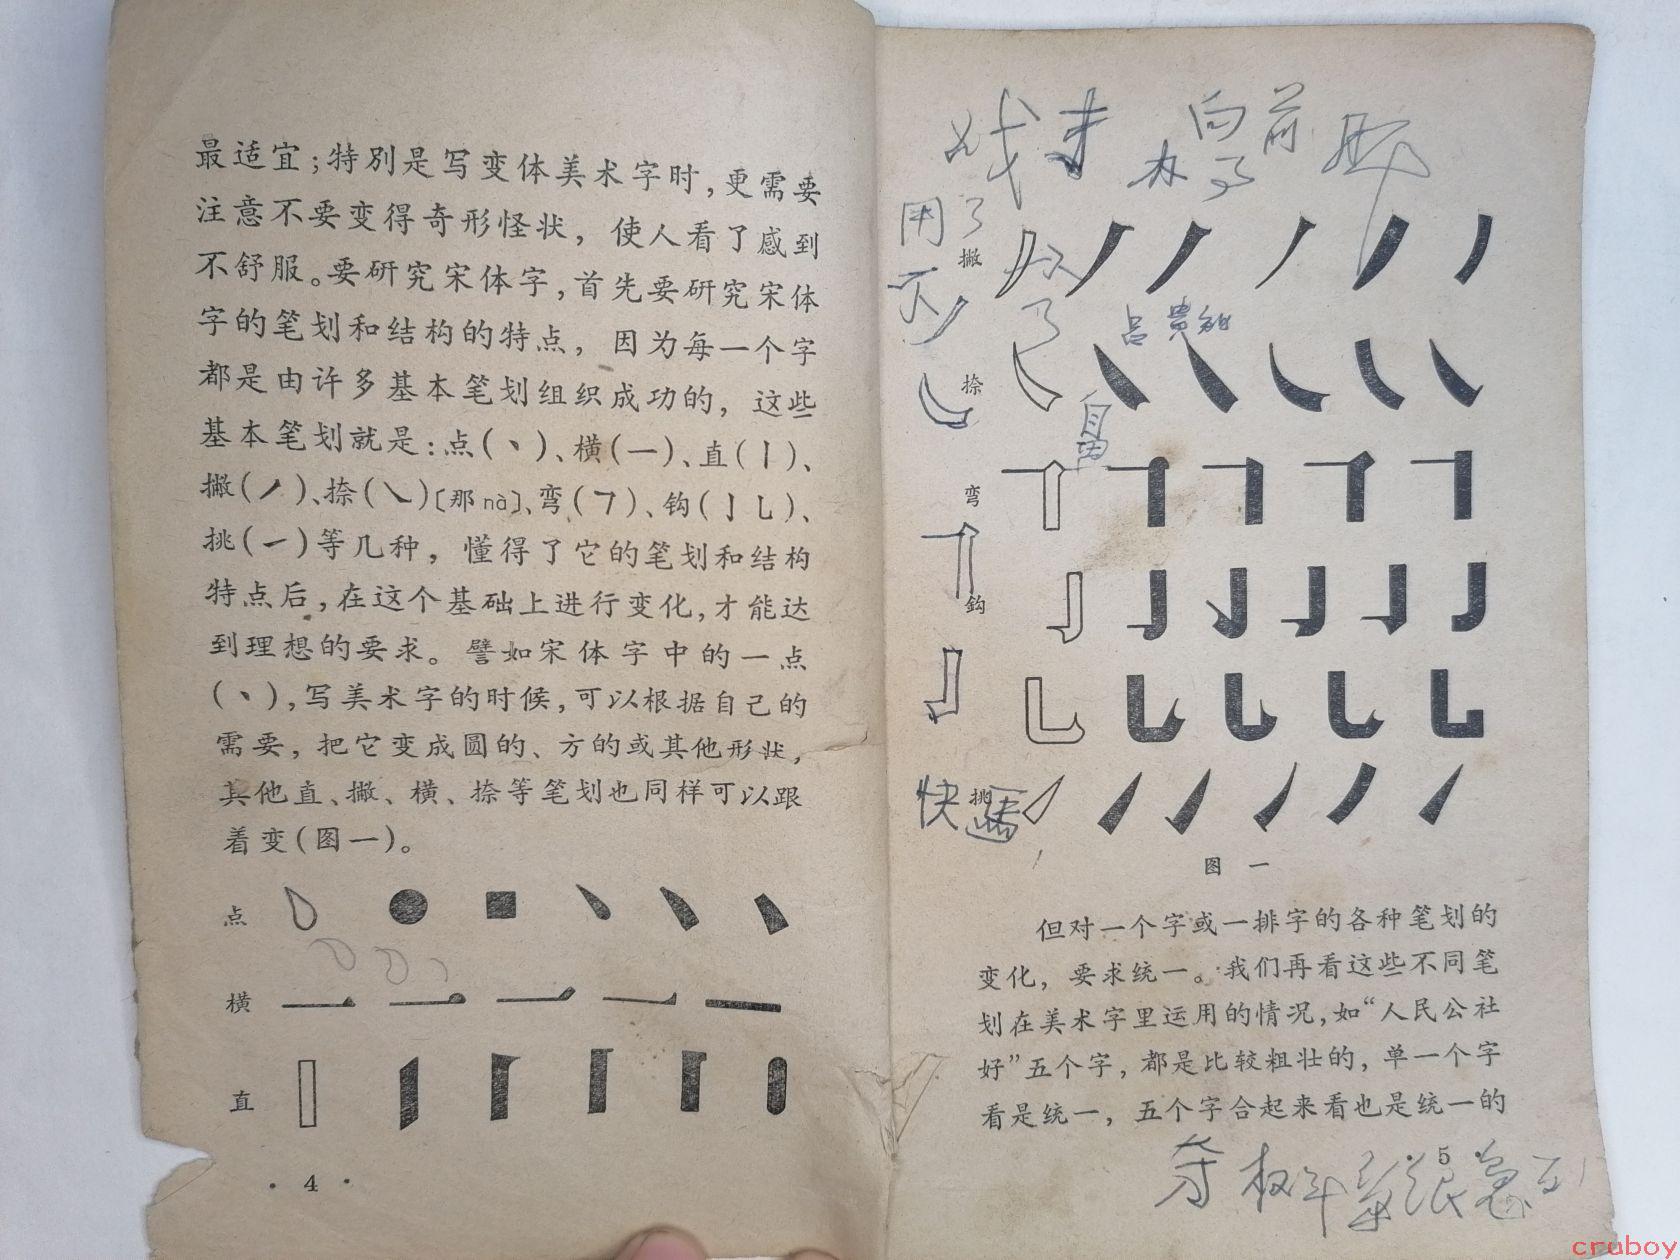 最适宜；特别是写变体美术字时，更需要
注意不要变得奇形怪状，使人看了感到
不舒服。要研究宋体字，首先要研究宋体
字的笔划和结构的特点，因为每一个字
都是由许多基本笔划组织成功的，这些
基本笔划就是：点(丶)、横(一)、直(丨)、
撇(丿)、捺(㇏)〔那nà〕、弯(㇕)、钩(亅乚)、
挑(㇀)等几种，懂得了它的笔划和结构
特点后，在这个基础上进行变化，才能达
到理想的要求。譬如宋体字中的一点
(丶)，写美术字的时候，可以根据自己的
需要，把它变成圆的、方的或其他形状，
其他直、撇、横、捺等笔划也同样可以跟
着变(图一)。
点
横
直
· 4 ·
向前
办
用了
不
撇
吕贵
捺
自
弯
鈎
快
挑
图 一
但对一个字或一排字的各种笔划的
变化，要求统一。我们再看这些不同笔
划在美术字里运用的情况，如“人民公社
好”五个字，都是比较粗壮的，单一个字
看是统一，五个字合起来看也是统一的
· 5 ·
cruboy